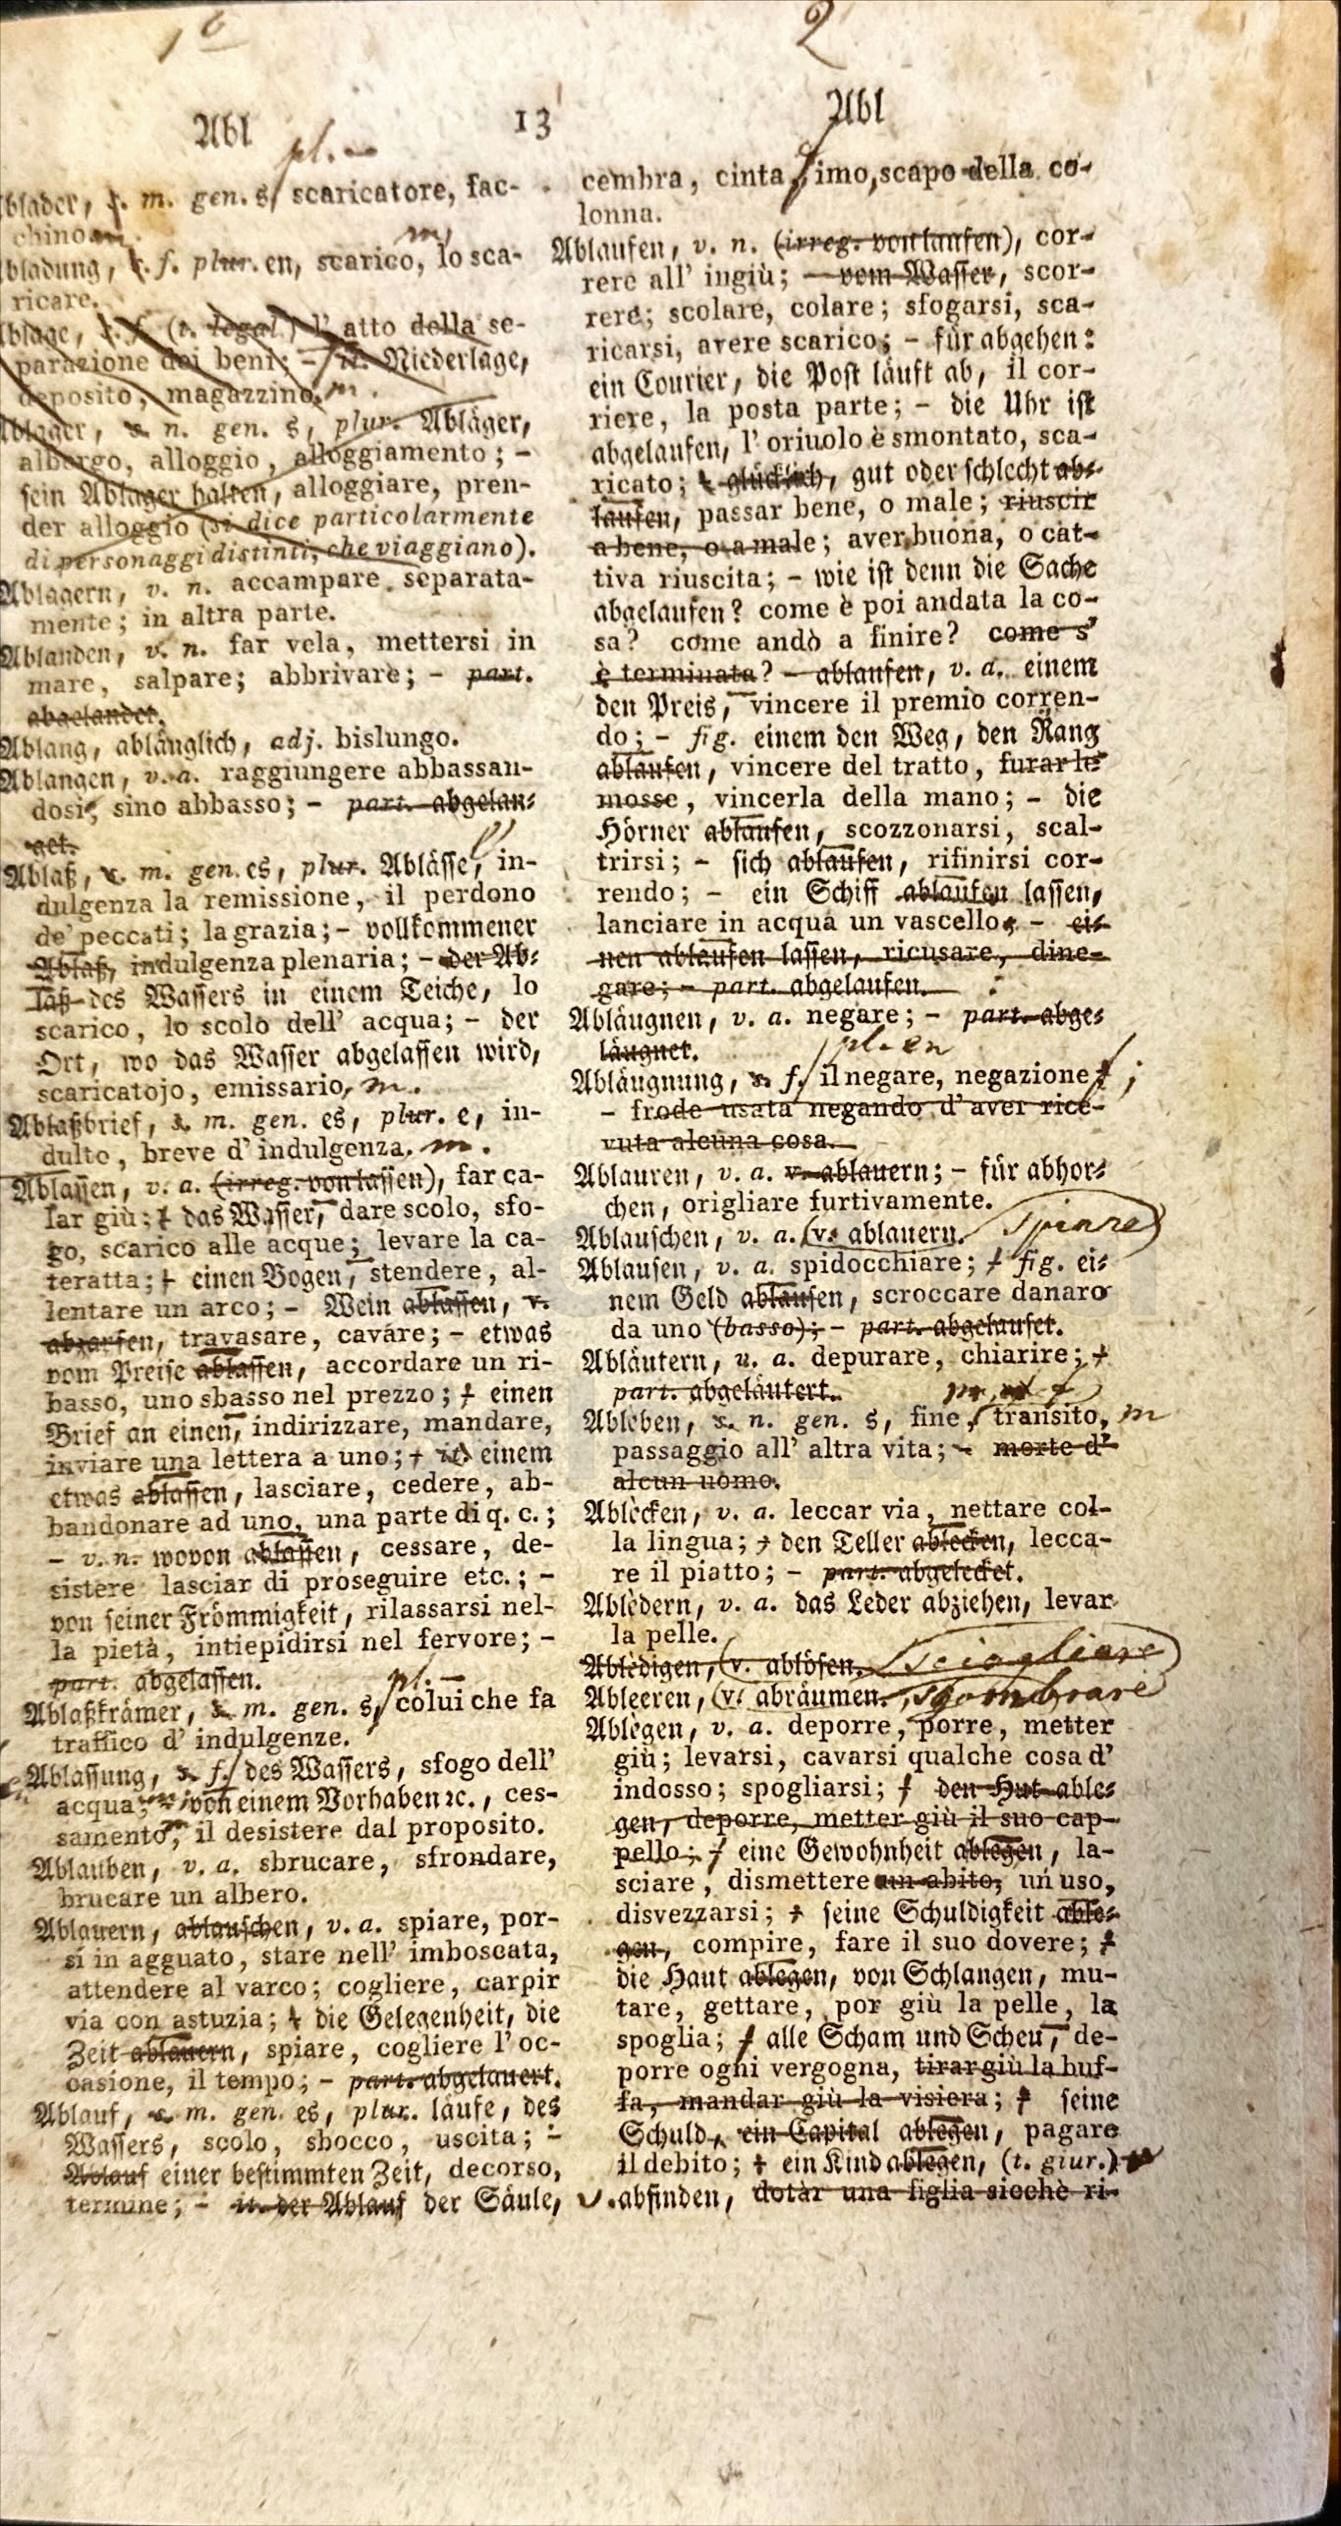 1 6
2
Abl 13 Abl
pl. –
blader, s. m. gen. s, scaricatore, fac-
chino
m
bladung, s. f. plur. en, scarico, lo sca-
ricare.
blage, s. f. (t. legal.) l' atto della se-
parazione dei beni; – it. Niederlage,
deposito, magazzino, m.
Ablager, s. n. gen. s, plur. Abläger,
albergo, alloggio, alloggiamento; –
sein Ablager halten, alloggiare, pren-
der alloggio (si dice particolarmente
di personaggi distinti, che viaggiano).
Ablagern, v. n. accampare separata-
mente; in altra parte.
Ablanden, v. n. far vela, mettersi in
mare, salpare; abbrivare; – part.
abgelandet.
Ablang, ablänglich, adj. bislungo.
Ablangen, v. a. raggiungere abbassan-
dosi, sino abbasso; – part. abgelan-
get.
Ablaß, s. m. gen. es, plur. Ablässe, in-
dulgenza la remissione, il perdono
de' peccati; la grazia; – vollkommener
Ablaß, indulgenza plenaria; – der Ab-
laß des Wassers in einem Teiche, lo
scarico, lo scolo dell' acqua; – der
Ort, wo das Wasser abgelassen wird,
scaricatojo, emissario, m.
Ablaßbrief, s. m. gen. es, plur. e, in-
dulto, breve d' indulgenza. m.
Ablassen, v. a. (irreg. von lassen), far ca-
lar giù; das Wasser, dare scolo, sfo-
go, scarico alle acque; levare la ca-
teratta; einen Bogen, stendere, al-
lentare un arco; – Wein ablassen, v.
abzapfen, travasare, cavare; – etwas
vom Preise ablassen, accordare un ri-
basso, uno sbasso nel prezzo; einen
Brief an einen, indirizzare, mandare,
inviare una lettera a uno; it. einem
etwas ablassen, lasciare, cedere, ab-
bandonare ad uno, una parte di q. c.;
– v. n. wovon ablassen, cessare, de-
sistere lasciar di proseguire etc.; –
von seiner Frömmigkeit, rilassarsi nel-
la pietà, intiepidirsi nel fervore; –
part. abgelassen.
pl. –
Ablaßkrämer, s. m. gen. s, colui che fa
traffico d' indulgenze.
Ablassung, s. f. des Wassers, sfogo dell'
acqua; von einem Vorhaben ꝛc., ces-
samento, il desistere dal proposito.
Ablauben, v. a. sbrucare, sfrondare,
brucare un albero.
Ablauern, ablauschen, v. a. spiare, por-
si in agguato, stare nell' imboscata,
attendere al varco; cogliere, carpir
via con astuzia; die Gelegenheit, die
Zeit ablauern, spiare, cogliere l' oc-
casione, il tempo; – part. abgelauert.
Ablauf, s. m. gen. es, plur. läufe, des
Wassers, scolo, sbocco, uscita; –
Ablauf einer bestimmten Zeit, decorso,
termine; – it. der Ablauf der Säule,
cembra, cinta, imo, scapo della co-
lonna.
Ablaufen, v. n. (irreg. von laufen), cor-
rere all' ingiù; – vom Wasser, scor-
rere; scolare, colare; sfogarsi, sca-
ricarsi, avere scarico; – für abgehen:
ein Courier, die Post läuft ab, il cor-
riere, la posta parte; – die Uhr ist
abgelaufen, l' oriuolo è smontato, sca-
ricato; glücklich, gut oder schlecht ab-
laufen, passar bene, o male; riuscir
a bene, o a male; aver buona, o cat-
tiva riuscita; – wie ist denn die Sache
abgelaufen? come è poi andata la co-
sa? come andò a finire? come s'
è terminata? – ablaufen, v. a. einem
den Preis, vincere il premio corren-
do; – fig. einem den Weg, den Rang
ablaufen, vincere del tratto, furar le
mosse, vincerla della mano; – die
Hörner ablaufen, scozzonarsi, scal-
trirsi; – sich ablaufen, rifinirsi cor-
rendo; – ein Schiff ablaufen lassen,
lanciare in acqua un vascello; – ei-
nen ablaufen lassen, ricusare, dine-
gare; – part. abgelaufen.
Abläugnen, v. a. negare; – part. abge-
läugnet.
pl. en
Abläugnung, s. f. il negare, negazione f;
– frode usata negando d' aver rice-
vuta alcuna cosa.
Ablauren, v. a. v. ablauern; – für abhor-
chen, origliare furtivamente.
Ablauschen, v. a. (v. ablauern. spiare)
Ablausen, v. a. spidocchiare; fig. ei-
nem Geld ablausen, scroccare danaro
da uno (basso); – part. abgelauset.
Abläutern, v. a. depurare, chiarire;
part. abgeläutert.
Ableben, s. n. gen. s, fine, transito, m
passaggio all' altra vita; – morte d'
alcun uomo.
Ablècken, v. a. leccar via, nettare col-
la lingua; den Teller ablecken, lecca-
re il piatto; – part. abgelecket.
Ablèdern, v. a. das Leder abziehen, levar
la pelle.
Ablèdigen, (v. ablösen. sciogliere
Ableeren, (v. abräumen. sgombrare
Ablègen, v. a. deporre, porre, metter
giù; levarsi, cavarsi qualche cosa d'
indosso; spogliarsi; den Hut able-
gen, deporre, metter giù il suo cap-
pello; eine Gewohnheit ablegen, la-
sciare, dismettere un abito, un uso,
disvezzarsi; seine Schuldigkeit able-
gen, compire, fare il suo dovere;
die Haut ablegen, von Schlangen, mu-
tare, gettare, por giù la pelle, la
spoglia; alle Scham und Scheu, de-
porre ogni vergogna, tirar giù la buf-
fa, mandar giù la visiera; seine
Schuld, ein Capital ablegen, pagare
il debito; ein Kind ablegen, (t. giur.)
v. abfinden, dotàr una figlia sicchè ri-